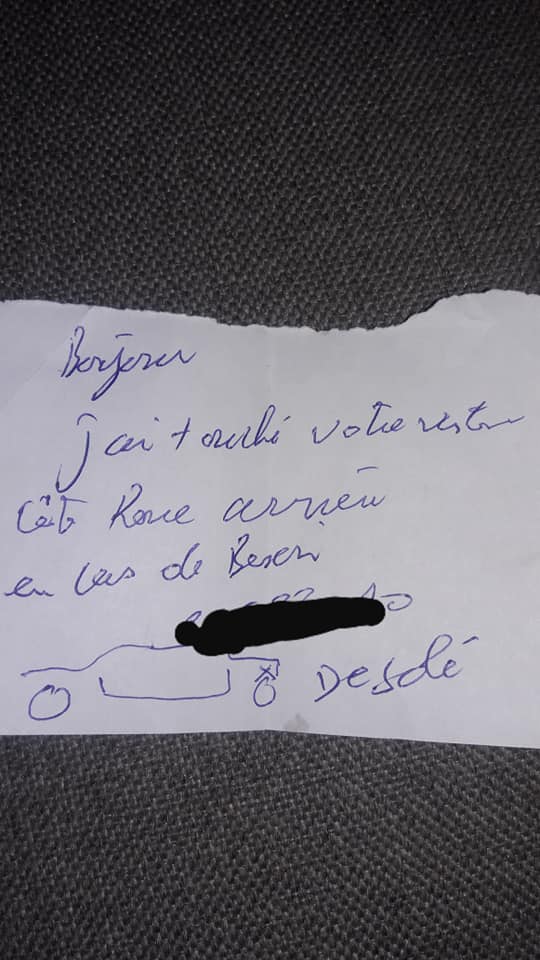 Bonjour
j'ai touché votre
côté Roue arrière
en cas de Besoin
Desolé